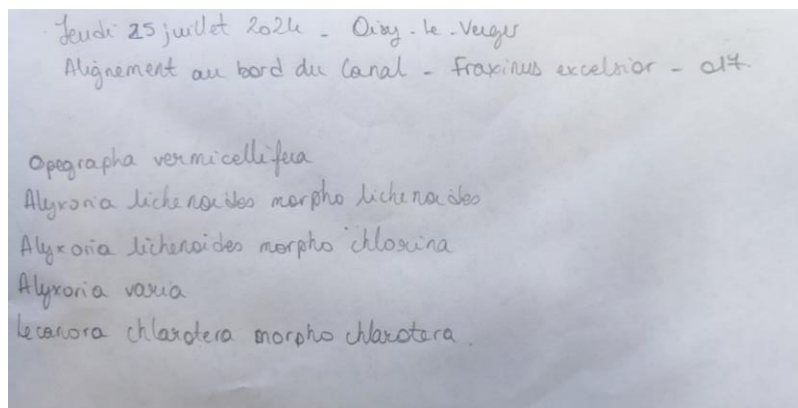 Jeudi 25 juillet 2024 - Oisy-le-Verger
Alignement au bord du Canal - Fraxinus excelsior - 017.
Opegrapha vermicellifera
Alyxoria lichenoides morpho lichenoides
Alyxoria lichenoides morpho chlorina
Alyxoria varia
Lecanora chlarotera morpho chlarotera.